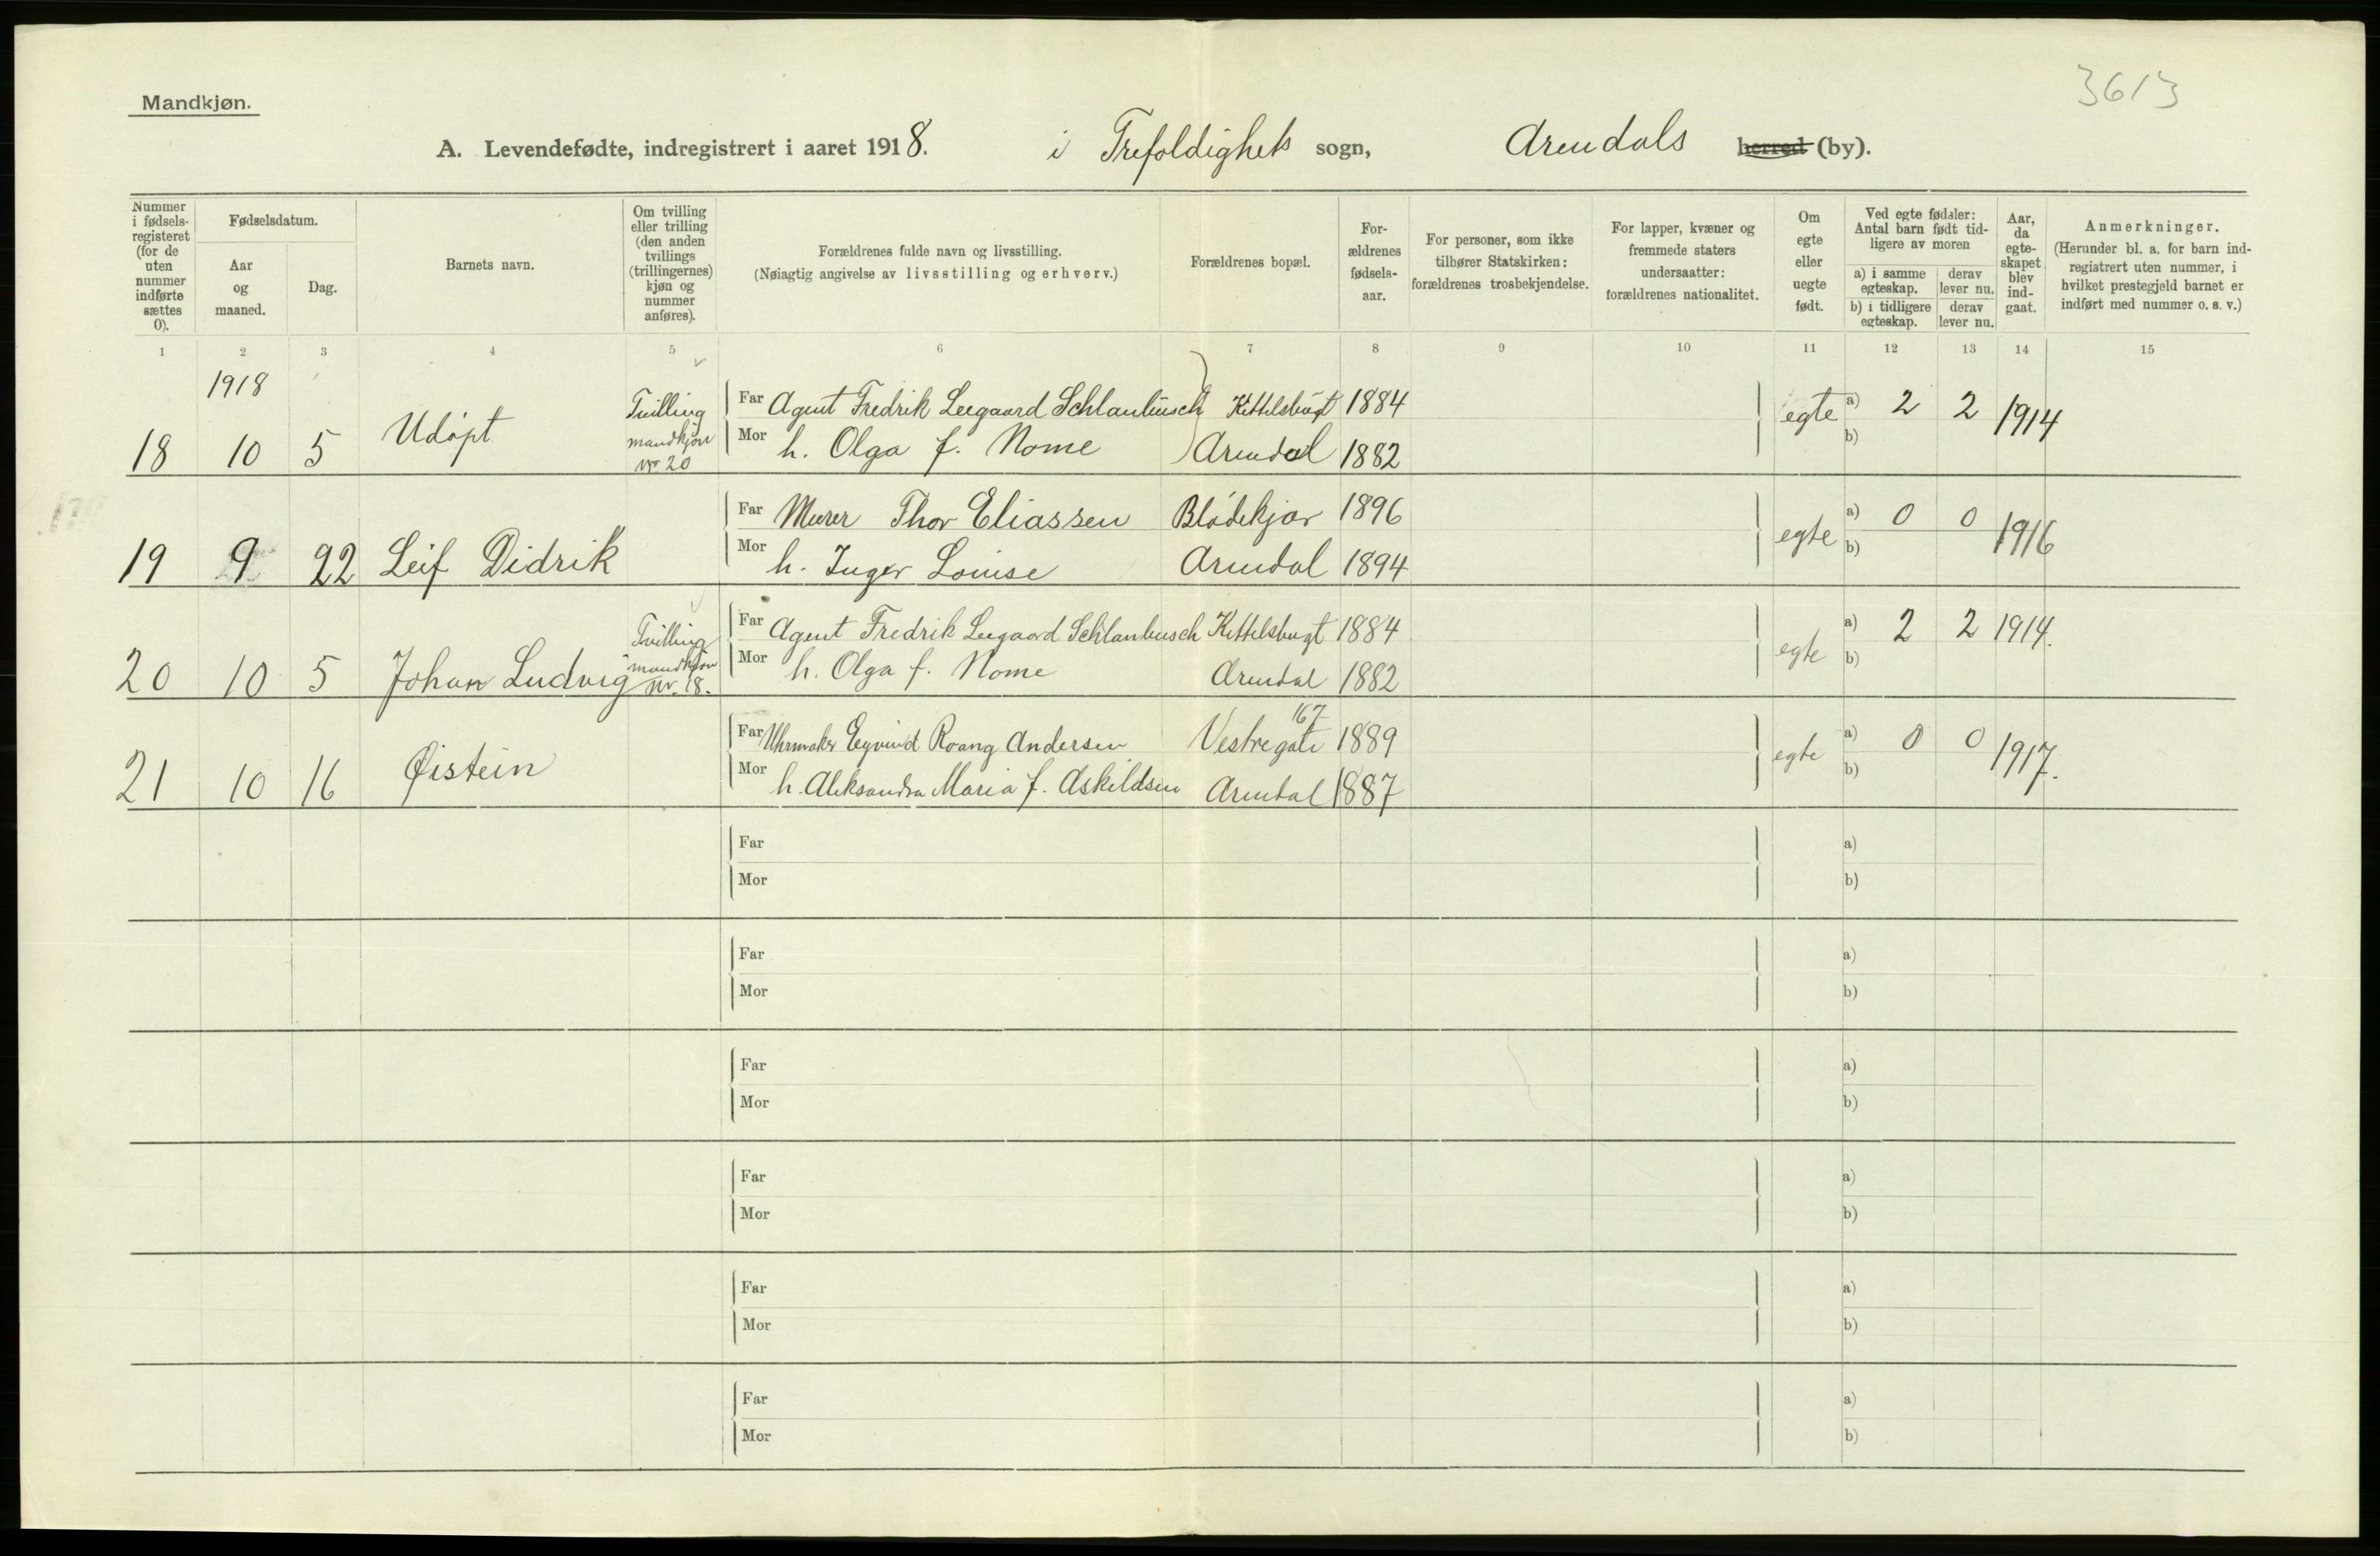 3613
Mandkjøn.
A. Levendefødte, indregistrert i aaret 1918. i Trefoldigheds sogn, Arendals herred (by).
Nummer i fødsels-registeret (for de uten nummer indførte sættes 0).
Fødselsdatum.
Aar og maaned.
Dag.
Barnets navn.
Om tvilling eller trilling (den anden tvillings (trillingernes) kjøn og nummer anføres).
Forældrenes fulde navn og livsstilling.
(Nøiagtig angivelse av livsstilling og erhverv.)
Forældrenes bopæl.
For-ældrenes fødsels-aar.
For personer, som ikke tilhører Statskirken: forældrenes trosbekjendelse.
For lapper, kvæner og fremmede staters undersaatter: forældrenes nationalitet.
Om egte eller uegte født.
Ved egte fødsler: Antal barn født tid-ligere av moren
a) i samme egteskap.
derav lever nu.
b) i tidligere egteskap.
derav lever nu.
Aar, da egte-skapet blev ind-gaat.
Anmerkninger.
(Herunder bl. a. for barn ind-registrert uten nummer, i hvilket prestegjeld barnet er indført med nummer o. s. v.)
1 2 3 4 5 6 7 8 9 10 11 12 13 14 15
1918
18 10 5 Udøpt Tvilling mandkjøn nr 20
Far Agent Fredrik Leegaard Schlanbusch Kittelsbugt 1884 egte a) 2 2 1914
Mor h. Olga f. Nome Arendal 1882 b)
19 9 22 Leif Didrik
Far Murer Thor Eliassen Blødekjær 1896 egte a) 0 0 1916
Mor h. Inger Louise Arendal 1894 b)
20 10 5 Johan Ludvig Tvilling mandkjøn nr. 18.
Far Agent Fredrik Leegaard Schlanbusch Kittelsbugt 1884 egte a) 2 2 1914.
Mor h. Olga f. Nome Arendal 1882 b)
21 10 16 Øistein
Far Uhrmaker Eyvind Roang Andersen Vestregate 167 1889 egte a) 0 0 1917.
Mor h. Aleksandra Maria f. Askildsen Arendal 1887 b)
Far a)
Mor b)
Far a)
Mor b)
Far a)
Mor b)
Far a)
Mor b)
Far a)
Mor b)
Far a)
Mor b)